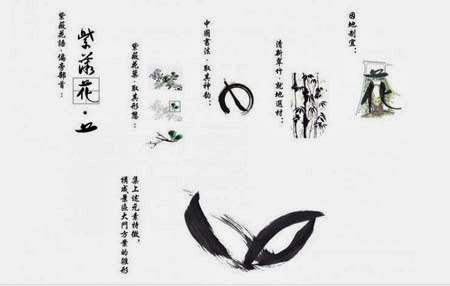 紫薇花語·偏旁部首：
紫薇花·
紫薇花葉·取其形態：
中國書法·取其神韵：
清新翠竹·就地選材：
因地制宜：
集上述元素特徵，
構成景區大門方案的雛形